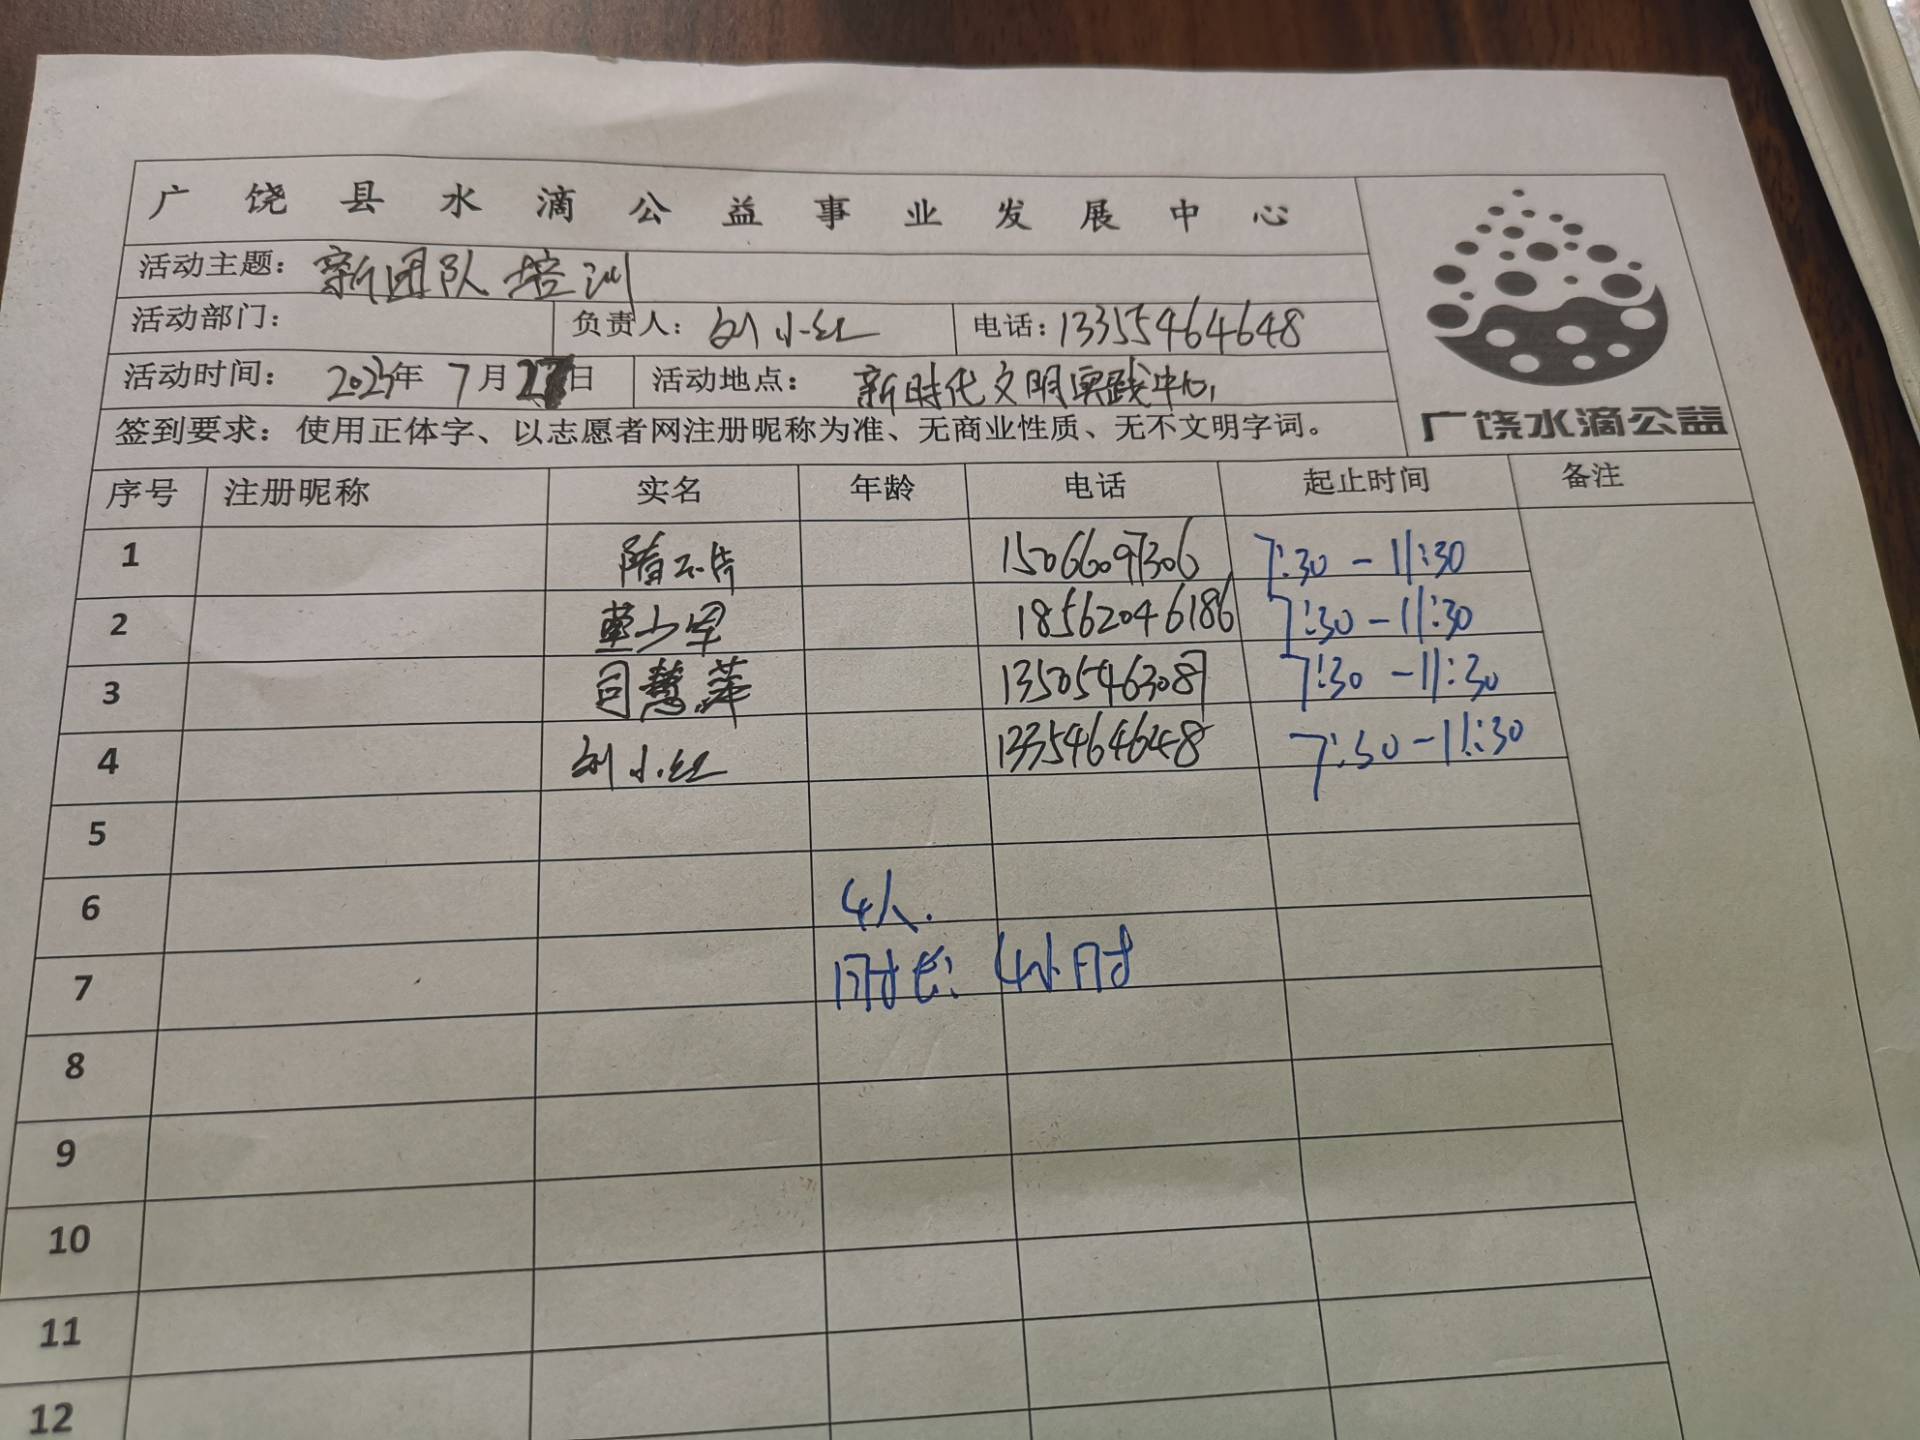 广饶县水滴公益事业发展中心
活动主题：新团队培训
活动部门： 负责人：刘小红 电话：13355464648
活动时间：2023年7月27日 活动地点：新时代文明实践中心
广饶水滴公益
签到要求：使用正体字、以志愿者网注册昵称为准、无商业性质、无不文明字词。
序号 注册昵称 实名 年龄 电话 起止时间 备注
1 隋 15066097306 7:30-11:30
2 董少军 18562046186 7:30-11:30
3 司慧萍 13505463087 7:30-11:30
4 刘小红 1335464648 7:30-11:30
5
6 4人.
7 时长：4小时
8
9
10
11
12